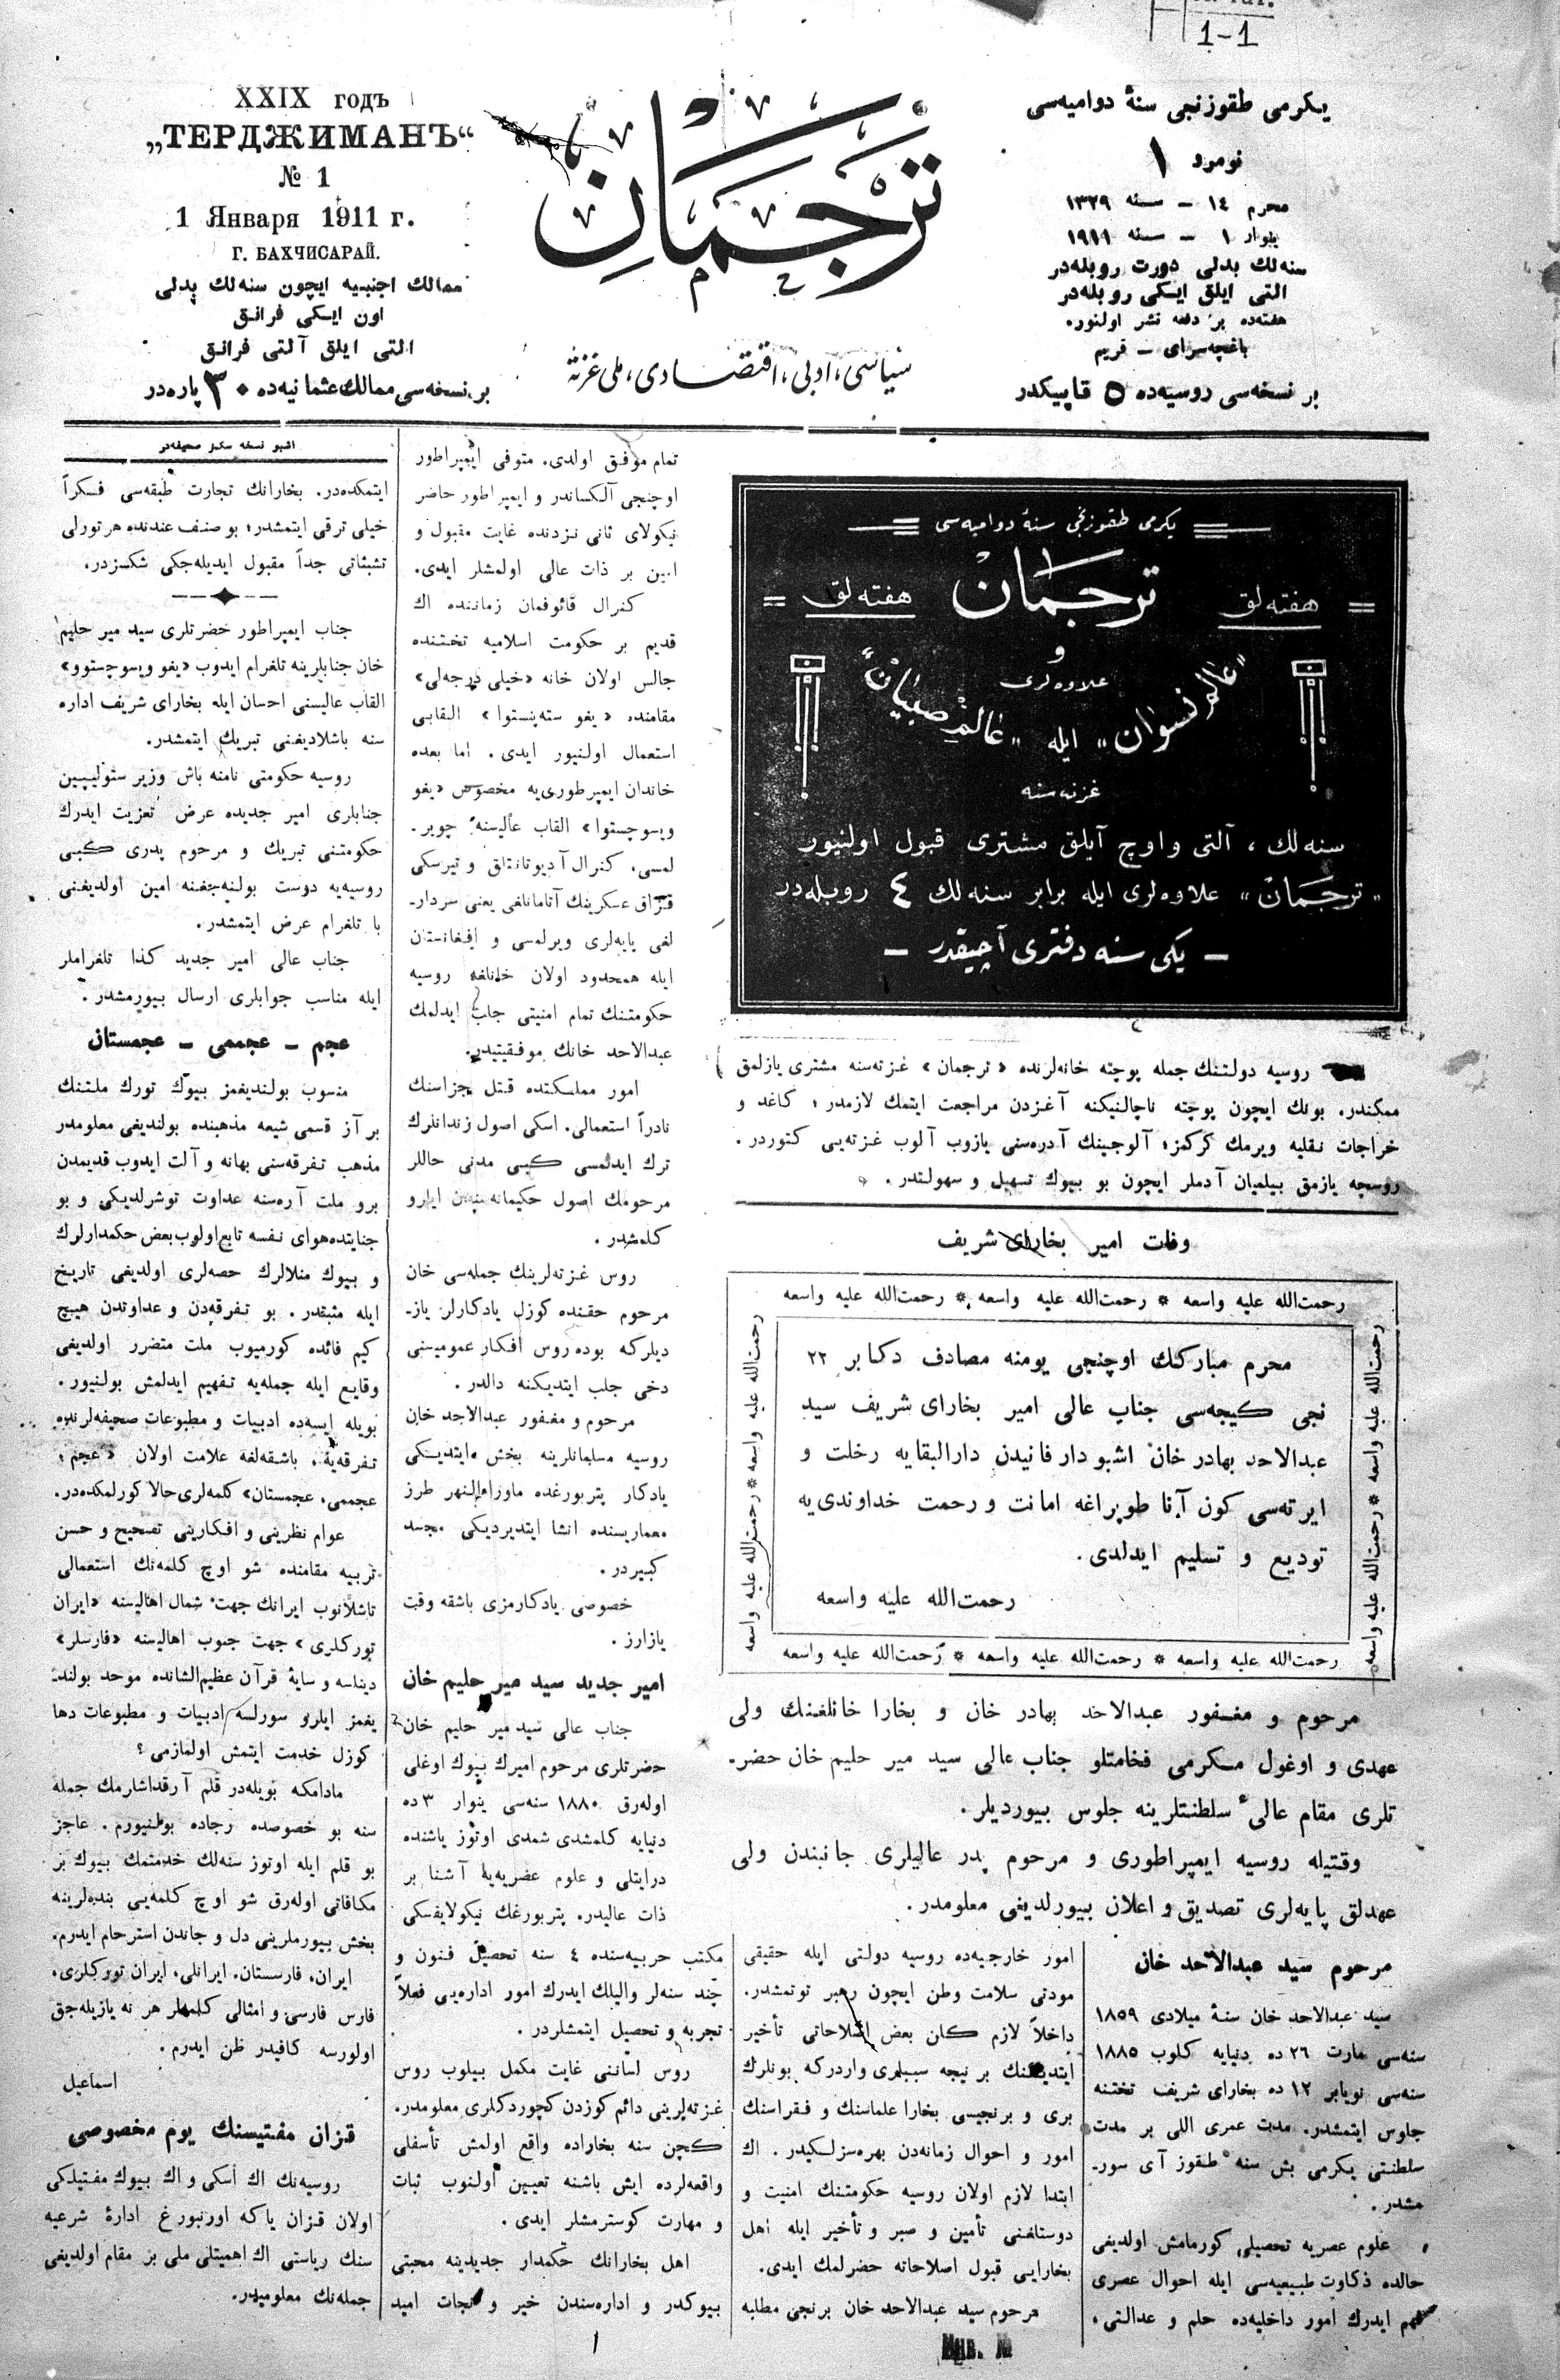 1-1
XXIX годъ
„ТЕРДЖИМАНЪ“
№ 1
1 Января 1911 г.
Г. БАХЧИСАРАЙ.
ممالك اجنبیه ایچون سنه‌لك بدلی
اون ایكی فرانق
التی ایلق آلتی فرانق
بر نسخه‌سی ممالك عثمانیه‌ده ٣٠ پاره‌در
ترجمان
سیاسی، ادبی، اقتصادی، ملی غزته
یكرمی طقوزنجی سنهٔ دوامیه‌سی
نومرو ١
محرم ١٤ – سنه ١٣٢٩
ینوار ١ – سنه ١٩١١
سنه‌لك بدلی دورت روبله‌در
التی ایلق ایكی روبله‌در
هفته‌ده بر دفعه نشر اولنور.
باغچه‌سرای – قریم
بر نسخه‌سی روسیه‌ده ٥ قاپیكدر
یكرمی طقوزنجی سنهٔ دوامیه‌سی
هفته‌لق ترجمان هفته‌لق
و
علاوه‌لری
„عالم نسوان“ ایله „عالم صبیان“
غزته‌سنه
سنه‌لك ، آلتی و اوچ آیلق مشتری قبول اولنیور
„ترجمان“ علاوه‌لری ایله برابر سنه‌لك ٤ روبله‌در
– یكی سنه دفتری آچیقدر –
روسیه دولتنك جمله پوچته خانه‌لرنده «ترجمان» غزته‌سنه مشتری یازلمق
ممكندر. بونك ایچون پوچته ناچالنیكنه آغزدن مراجعت ایتمك لازمدر؛ كاغد و
خراجات نقلیه ویرمك كركمز؛ آلوجینك آدره‌سنی یازوب آلوب غزته‌یی كتوردر.
روسچه یازمق بیلمیان آدملر ایچون بو بیوك تسهیل و سهولتدر.
وفات امیر بخارای شریف
رحمت‌الله علیه واسعه * رحمت‌الله علیه واسعه * رحمت‌الله علیه واسعه
رحمت‌الله علیه واسعه * رحمت‌الله علیه واسعه
محرم مباركك اوچنجی یومنه مصادف دكابر ٢٢
نجی كیجه‌سی جناب عالی امیر بخارای شریف سید
عبدالاحد بهادر خان اشبو دار فانیدن دارالبقایه رحلت و
ایرته‌سی كون آنا طوپراغه امانت و رحمت خداوندی‌یه
تودیع و تسلیم ایدلدی.
رحمت‌الله علیه واسعه
رحمت‌الله علیه واسعه * رحمت‌الله علیه واسعه
رحمت‌الله علیه واسعه * رحمت‌الله علیه واسعه * رحمت‌الله علیه واسعه
مرحوم و مغفور عبدالاحد بهادر خان و بخارا خانلغنك ولی
عهدی و اوغول مكرمی فخامتلو جناب عالی سید میر حلیم خان حضر-
تلری مقام عالیٔ سلطنتلرینه جلوس بیوردیلر.
وقتیله روسیه ایمپراطوری و مرحوم پدر عالیلری جانبندن ولی
عهدلق پایه‌لری تصدیق و اعلان بیورلدیغی معلومدر.
مرحوم سید عبدالاحد خان
سید عبدالاحد خان سنهٔ میلادی ١٨٥٩
سنه‌سی مارت ٢٦ ده دنیایه كلوب ١٨٨٥
سنه‌سی نویابر ١٢ ده بخارای شریف تختنه
جلوس ایتمشدر. مدت عمری اللی بر مدت
سلطنتی یكرمی بش سنه طقوز آی سور-
مشدر.
علوم عصریه تحصیلی كورمامش اولدیغی
حالده ذكاوت طبیعیه‌سی ایله احوال عصری
فهم ایدرك امور داخلیه‌ده حلم و عدالتی،
امور خارجیه‌ده روسیه دولتی ایله حقیقی
مودتی سلامت وطن ایچون رهبر توتمشدر.
داخلاً لازم كان بعض اصلاحاتی تأخیر
ایتدیكنك بر نیجه سببلری واردركه بونلرك
بری و برنجیسی بخارا علماسنك و فقراسنك
امور و احوال زمانه‌دن بهره‌سزلكیدر. اك
ابتدا لازم اولان روسیه حكومتنك امنیت و
دوستلغنی تأمین و صبر و تأخیر ایله اهل
بخارایی قبول اصلاحاته حضرلمك ایدی.
مرحوم سید عبدالاحد خان برنجی مطلبه
تمام موفق اولدی. متوفی ایمپراطور
اوچنجی آلكساندر و ایمپراطور حاضر
نیكولای ثانی نزدنده غایت مقبول و
امین بر ذات عالی اولمشلر ایدی.
كنرال قائوفمان زماننده اك
قدیم بر حكومت اسلامیه تختنده
جالس اولان خانه «خیلی درجه‌لی»
مقامنده «یغو سته‌پنستوا» القابی
استعمال اولنیور ایدی. اما بعده
خاندان ایمپرطوری‌یه مخصوص «یغو
ویسوچستوا» القاب عالیسنه چویر-
لمسی، كنرال آدیوتانتلق و تیرسكی
قزاق عسكرینك آتامانلغی یعنی سردار-
لغی پایه‌لری ویرلمسی و افغانستان
ایله همحدود اولان خانلغه روسیه
حكومتنك تمام امنیتی جلب ایدلمك
عبدالاحد خانك موفقیتیدر.
امور مملكتده قتل جزاسنك
نادراً استعمالی. اسكی اصول زندانلرك
ترك ایدلمسی كبی مدنی حاللر
مرحومك اصول حكیمانه‌سندن ایلرو
كلمشدر.
روس غزته‌لرینك جمله‌سی خان
مرحوم حقنده كوزل یادكارلر یاز-
دیلركه بوده روس افكار عمومیسنی
دخی جلب ایتدیكنه دالدر.
مرحوم و مغفور عبدالاحد خان
روسیه مسلمانلرینه بخش ایتدیكی
یادكار پتربورغده ماوراءالنهر طرز
معماریسنده انشا ایتدیردیكی مسجد
كبیردر.
خصوصی یادكارمزی باشقه وقت
یازارز.
امیر جدید سید میر حلیم خان
جناب عالی سید میر حلیم خان
حضرتلری مرحوم امیرك بیوك اوغلی
اوله‌رق ١٨٨٠ سنه‌سی ینوار ٣ ده
دنیایه كلمشدی شمدی اوتوز یاشنده
درایتلی و علوم عصریه‌یه آشنا بر
ذات عالیدر. پتربورغك نیكولایفسكی
مكتب حربیه‌سنده ٤ سنه تحصیل فنون و
چند سنه‌لر والیلك ایدرك امور اداره‌یی فعلاً
تجربه و تحصیل ایتمشلردر.
روس لسانی غایت مكمل بیلوب روس
غزته‌لرینی دائم كوزدن كچوردكلری معلومدر.
كچن سنه بخاراده واقع اولمش تأسفلی
واقعه‌لرده ایش باشنه تعیین اولنوب ثبات
و مهارت كوسترمشلر ایدی.
اهل بخارانك حكمدار جدیدینه محبتی
بیوكدر و اداره‌سندن خیر و نجات امید
اشبو نسخه سكز صحیفه‌در
ایتمكده‌در. بخارانك تجارت طبقه‌سی فكراً
خیلی ترقی ایتمشدر؛ بو صنف عندنده هر تورلی
تشبثاتی جداً مقبول ایدیله‌جكی شكسزدر.
جناب ایمپراطور حضرتلری سید میر حلیم
خان جنابلرینه تلغرام ایدوب «یغو ویسوچستوو»
القاب عالیسنی احسان ایله بخارای شریف اداره
سنه باشلادیغنی تبریك ایتمشدر.
روسیه حكومتی نامنه باش وزیر ستولیپین
جنابلری امیر جدیده عرض تعزیت ایدرك
حكومتنی تبریك و مرحوم پدری كبی
روسیه‌یه دوست بولنه‌جغنه امین اولدیغنی
با تلغرام عرض ایتمشدر.
جناب عالی امیر جدید كذا تلغراملر
ایله مناسب جوابلری ارسال بیورمشدر.
عجم – عجمی – عجمستان
منسوب بولندیغمز بیوك تورك ملتنك
بر آز قسمی شیعه مذهبنده بولندیغی معلومدر
مذهب تفرقه‌سنی بهانه و آلت ایدوب قدیمدن
برو ملت آره‌سنه عداوت توشرلدیكی و بو
جنایتده هوای نفسه تابع اولوب بعض حكمدارلرك
و بیوك منلالرك حصه‌لری اولدیغی تاریخ
ایله مثبتدر. بو تفرقه‌دن و عداوتدن هیچ
كیم فائده كورمیوب ملت متضرر اولدیغی
وقایع ایله جمله‌یه تفهیم ایدلمش بولنیور.
بویله ایسه‌ده ادبیات و مطبوعات صحیفه‌لرنده
تفرقه‌یه، باشقه‌لغه علامت اولان «عجم،
عجمی، عجمستان» كلمه‌لری حالا كورلمكده‌در.
عوام نظرینی و افكارینی تصحیح و حسن
تربیه مقامنده شو اوچ كلمه‌نك استعمالی
تاشلانوب ایرانك جهت شمال اهالیسنه «ایران
توركلری» جهت جنوب اهالیسنه «فارسلر»
دیناسه و سایهٔ قرآن عظیم‌الشانده موحد بولند-
یغمز ایلرو سورلسه ادبیات و مطبوعات دها
كوزل خدمت ایتمش اولمازمی؟
مادامكه بویله‌در قلم آرقداشارمك جمله
سنه بو خصوصده رجاده بولنیورم. عاجز
بو قلم ایله اوتوز سنه‌لك خدمتمك بیوك بر
مكافاتی اوله‌رق شو اوچ كلمه‌یی بنده‌لرینه
بخش بیورملرینی دل و جاندن استرحام ایدرم.
ایران، فارسستان. ایرانلی، ایران توركلری،
فارس فارسی و امثالی كلمه‌لر هر نه یازیله‌جق
اولورسه كافیدر ظن ایدرم.
اسماعیل
قزان مفتیسنك یوم مخصوصی
روسیه‌نك اك أسكی و اك بیوك مفتیلكی
اولان قزان یاكه اورنبورغ ادارهٔ شرعیه
سنك ریاستی اك اهمیتلی ملی بر مقام اولدیغی
جمله‌نك معلومیدر.
١
Инв. №